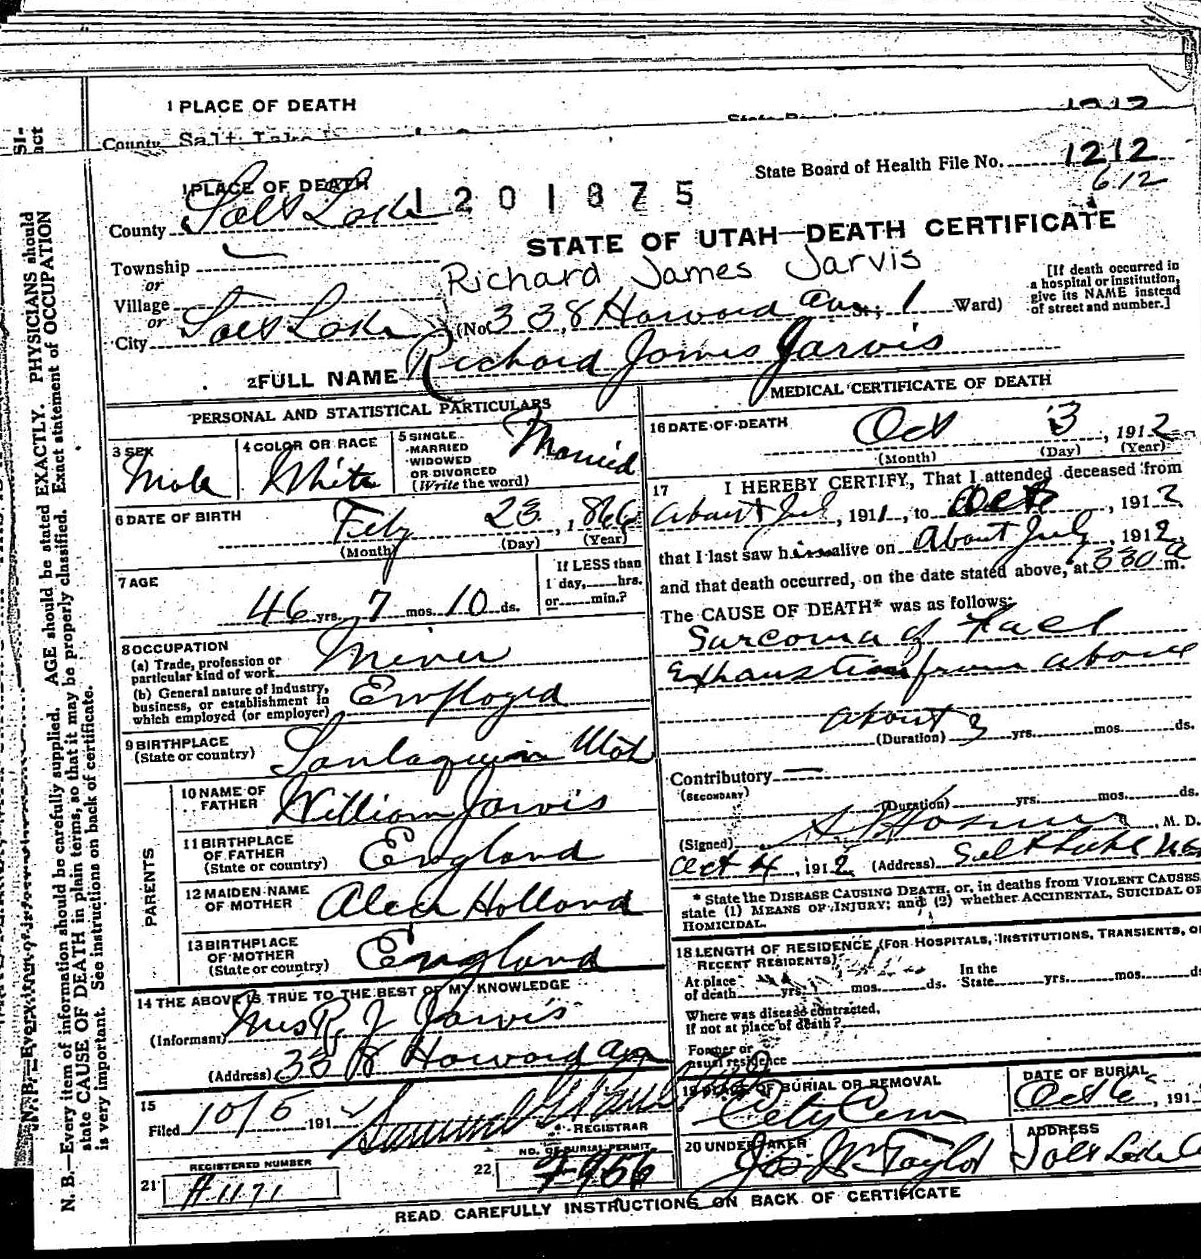 1 PLACE OF DEATH
1212
County Salt Lake
State Board of Health File No. 1212
612
1 PLACE OF DEATH
1201875
County Salt Lake
STATE OF UTAH—DEATH CERTIFICATE
Township
or
Village
or
City Salt Lake
Richard James Jarvis
(No. 338 Howard Ave St; 1 Ward)
[If death occurred in
a hospital or institution,
give its NAME instead
of street and number.]
2 FULL NAME Richard James Jarvis
PERSONAL AND STATISTICAL PARTICULARS
3 SEX
Male
4 COLOR OR RACE
White
5 SINGLE
MARRIED
WIDOWED
OR DIVORCED
(Write the word)
Married
6 DATE OF BIRTH
Feby 23, 1866
(Month) (Day) (Year)
7 AGE
46 yrs. 7 mos. 10 ds.
If LESS than
1 day, hrs.
or min.?
8 OCCUPATION
(a) Trade, profession or
particular kind of work
Miner
(b) General nature of industry,
business, or establishment in
which employed (or employer)
Employed
9 BIRTHPLACE
(State or country)
Santaquin Utah
PARENTS
10 NAME OF
FATHER
William Jarvis
11 BIRTHPLACE
OF FATHER
(State or country)
England
12 MAIDEN NAME
OF MOTHER
Holland
13 BIRTHPLACE
OF MOTHER
(State or country)
England
14 THE ABOVE IS TRUE TO THE BEST OF MY KNOWLEDGE
(Informant) Mrs R. J. Jarvis
(Address) 338 Howard Ave
15
Filed 10/5 191
REGISTRAR
REGISTERED NUMBER
21 #1171
NO. OF BURIAL PERMIT
22
MEDICAL CERTIFICATE OF DEATH
16 DATE OF DEATH
Oct 3, 1912
(Month) (Day) (Year)
17 I HEREBY CERTIFY, That I attended deceased from
About Jul, 1911, to Oct, 1912
that I last saw him alive on About July, 1912,
and that death occurred, on the date stated above, at 330 a m.
The CAUSE OF DEATH* was as follows:
Sarcoma of Face
Exhaustion from above
about 3
(Duration) yrs. mos. ds.
Contributory
(SECONDARY)
(Duration) yrs. mos. ds.
(Signed) M. D.
Oct 4, 1912 (Address) Salt Lake
* State the DISEASE CAUSING DEATH, or, in deaths from VIOLENT CAUSES,
state (1) MEANS OF INJURY; and (2) whether ACCIDENTAL, SUICIDAL OR
HOMICIDAL.
18 LENGTH OF RESIDENCE (FOR HOSPITALS, INSTITUTIONS, TRANSIENTS, OR
RECENT RESIDENTS)
At place
of death yrs. mos. ds.
In the
State yrs. mos. ds.
Where was disease contracted,
If not at place of death?
Former or
usual residence
19 PLACE OF BURIAL OR REMOVAL
City Cem
DATE OF BURIAL
Oct 6, 191
20 UNDERTAKER
Jos. Wm Taylor
ADDRESS
Salt Lake
READ CAREFULLY INSTRUCTIONS ON BACK OF CERTIFICATE
N. B.—Every item of information should be carefully supplied. AGE should be stated EXACTLY. PHYSICIANS should
state CAUSE OF DEATH in plain terms, so that it may be properly classified. Exact statement of OCCUPATION
is very important. See instructions on back of certificate.